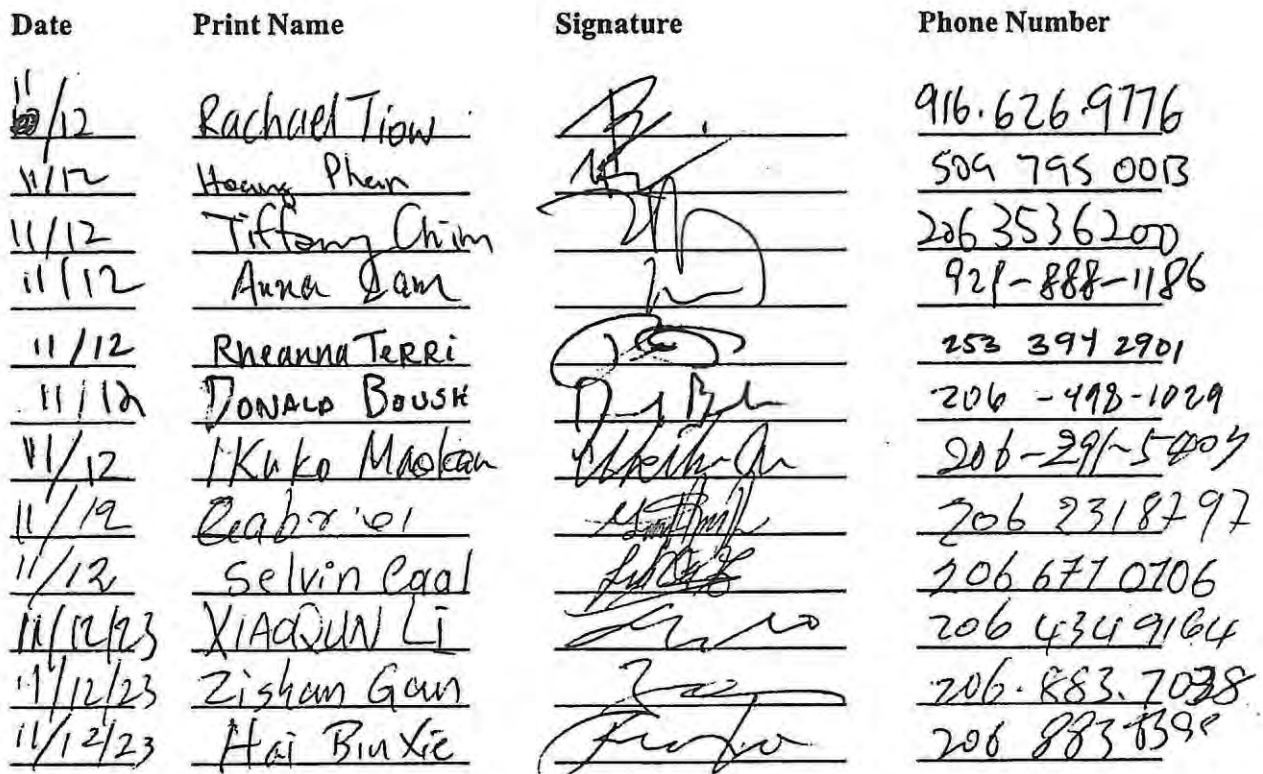 Date Print Name Signature Phone Number
11/12 Rachael Tiow 916.626.9776
11/12 Hoang Phan 509 795 0013
11/12 Tiffany Chim 206 353 6200
11/12 Anna Lam 921-888-1186
11/12 Rheanna TERRi 253 394 2901
11/12 DONALD BOUSH 206-498-1029
11/12 IKuko 206-291-
11/12 Gabriel 206 2318797
11/12 Selvin Caal 206 671 0706
11/12/23 XIAOQUN Li 206 434 9164
11/12/23 Zishan Gan 206.883.7038
11/12/23 Hai Bin Xie 206 883